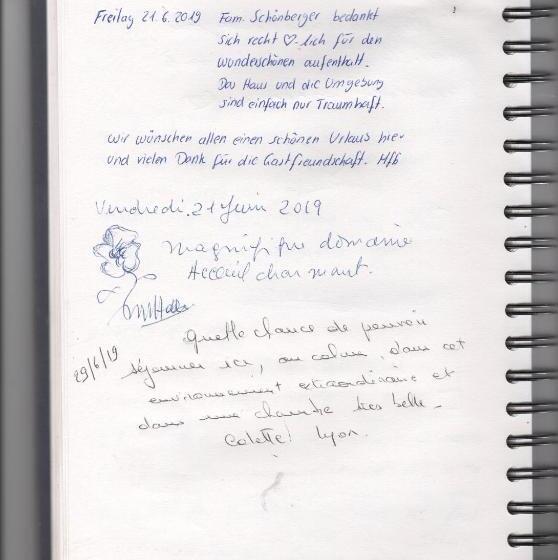 Freitag 21.6.2019 Fam. Schönberger bedankt
sich recht ♡-lich für den
wunderschönen aufenthalt.
Das Haus und die Umgebung
sind einfach nur Traumhaft.
Wir wünschen allen einen schönen Urlaub hier
und vielen Dank für die Gastfreundschaft.
Vendredi.21 Juin 2019
Magnifique domaine
Acceuil charmant.
29/6/19
Quelle chance de pouvoir
séjourner ici, au calme, dans cet
environnement extraordinaire et
dans une chambre très belle.
Colette! Lyon.